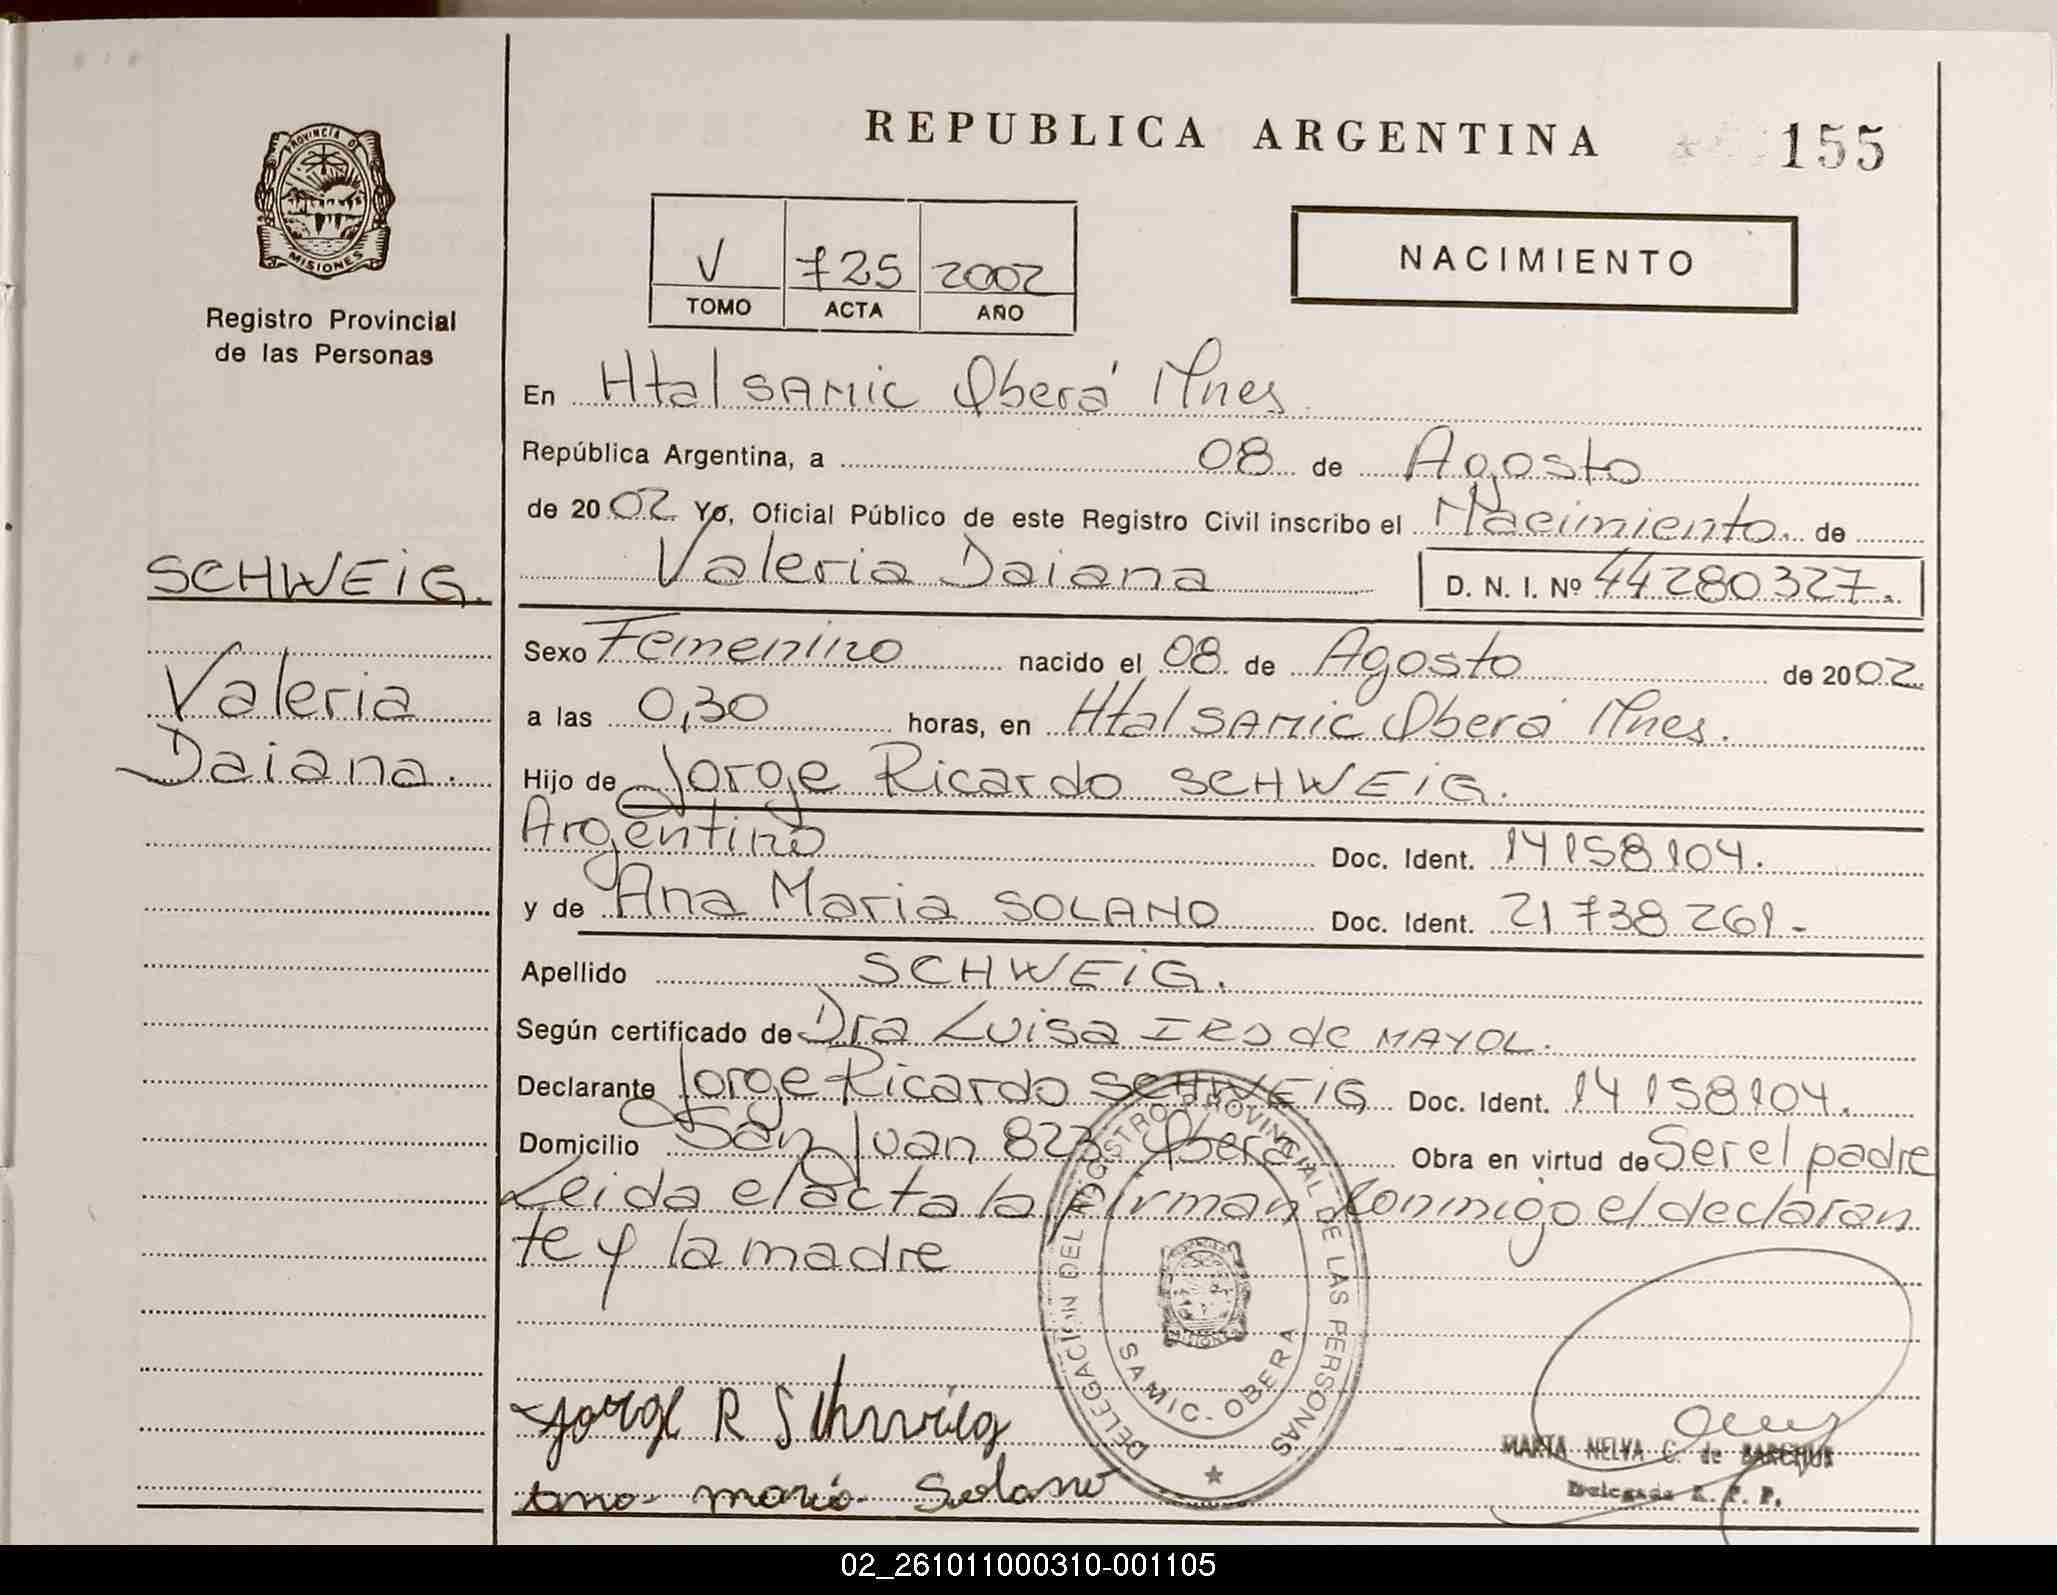 REPUBLICA ARGENTINA
155
PROVINCIA DE
MISIONES
Registro Provincial
de las Personas
V 725 2002
TOMO ACTA AÑO
NACIMIENTO
En Htal SAMIC Oberá Mnes.
República Argentina, a 08 de Agosto
de 2002 Yo, Oficial Público de este Registro Civil inscribo el Nacimiento de
Valeria Daiana D. N. I. Nº 44280327.
SCHWEIG.
Valeria
Daiana.
Sexo Femenino nacido el 08 de Agosto de 2002
a las 0,30 horas, en Htal SAMIC Oberá Mnes.
Hijo de Jorge Ricardo SCHWEIG.
Argentino Doc. Ident. 14158104.
y de Ana Maria SOLANO Doc. Ident. 21738261.-
Apellido SCHWEIG.
Según certificado de Dra Luisa de MAYOL.
Declarante Jorge Ricardo SCHWEIG Doc. Ident. 14158104.
Domicilio San Juan 823 Oberá Obra en virtud de Ser el padre
Leida el acta la firman conmigo el declaran
te y la madre
DELEGACION DEL REGISTRO PROVINCIAL DE LAS PERSONAS
SAMIC - OBERA
Jorge R Schweig
ana maria Solano
MARTA NELVA C. de
Delegada R. P. P.
02_261011000310-001105